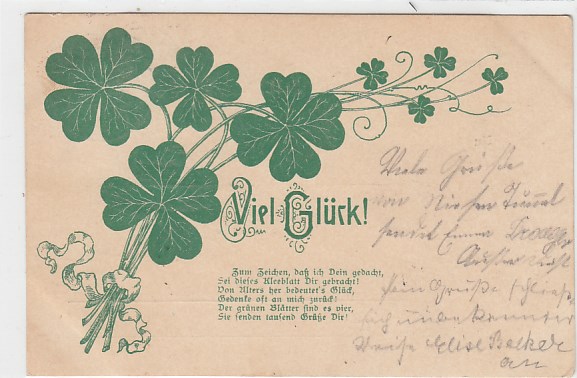 Viel Glück!
Zum Zeichen, daß ich Dein gedacht,
Sei dieses Kleeblatt Dir gebracht!
Von Alters her bedeutet's Glück,
Gedenke oft an mich zurück!
Der grünen Blätter sind es vier,
Sie senden tausend Grüße Dir!
Viele Grüße
von
sendet Emma
Grüße
sich unbekannter
Weise Elise Becker